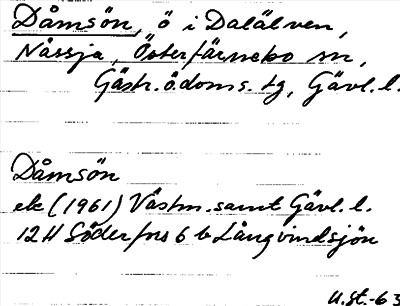 Dåmsön, ö i Dalälven,
Nässja, Österfärnebo sn,
Gästr. ö. doms. tg, Gävl. l.
Dåmsön
ek (1961) Västm. samt Gävl. l.
12H Söderfors 6 b Långvindsjön
U.st.-63